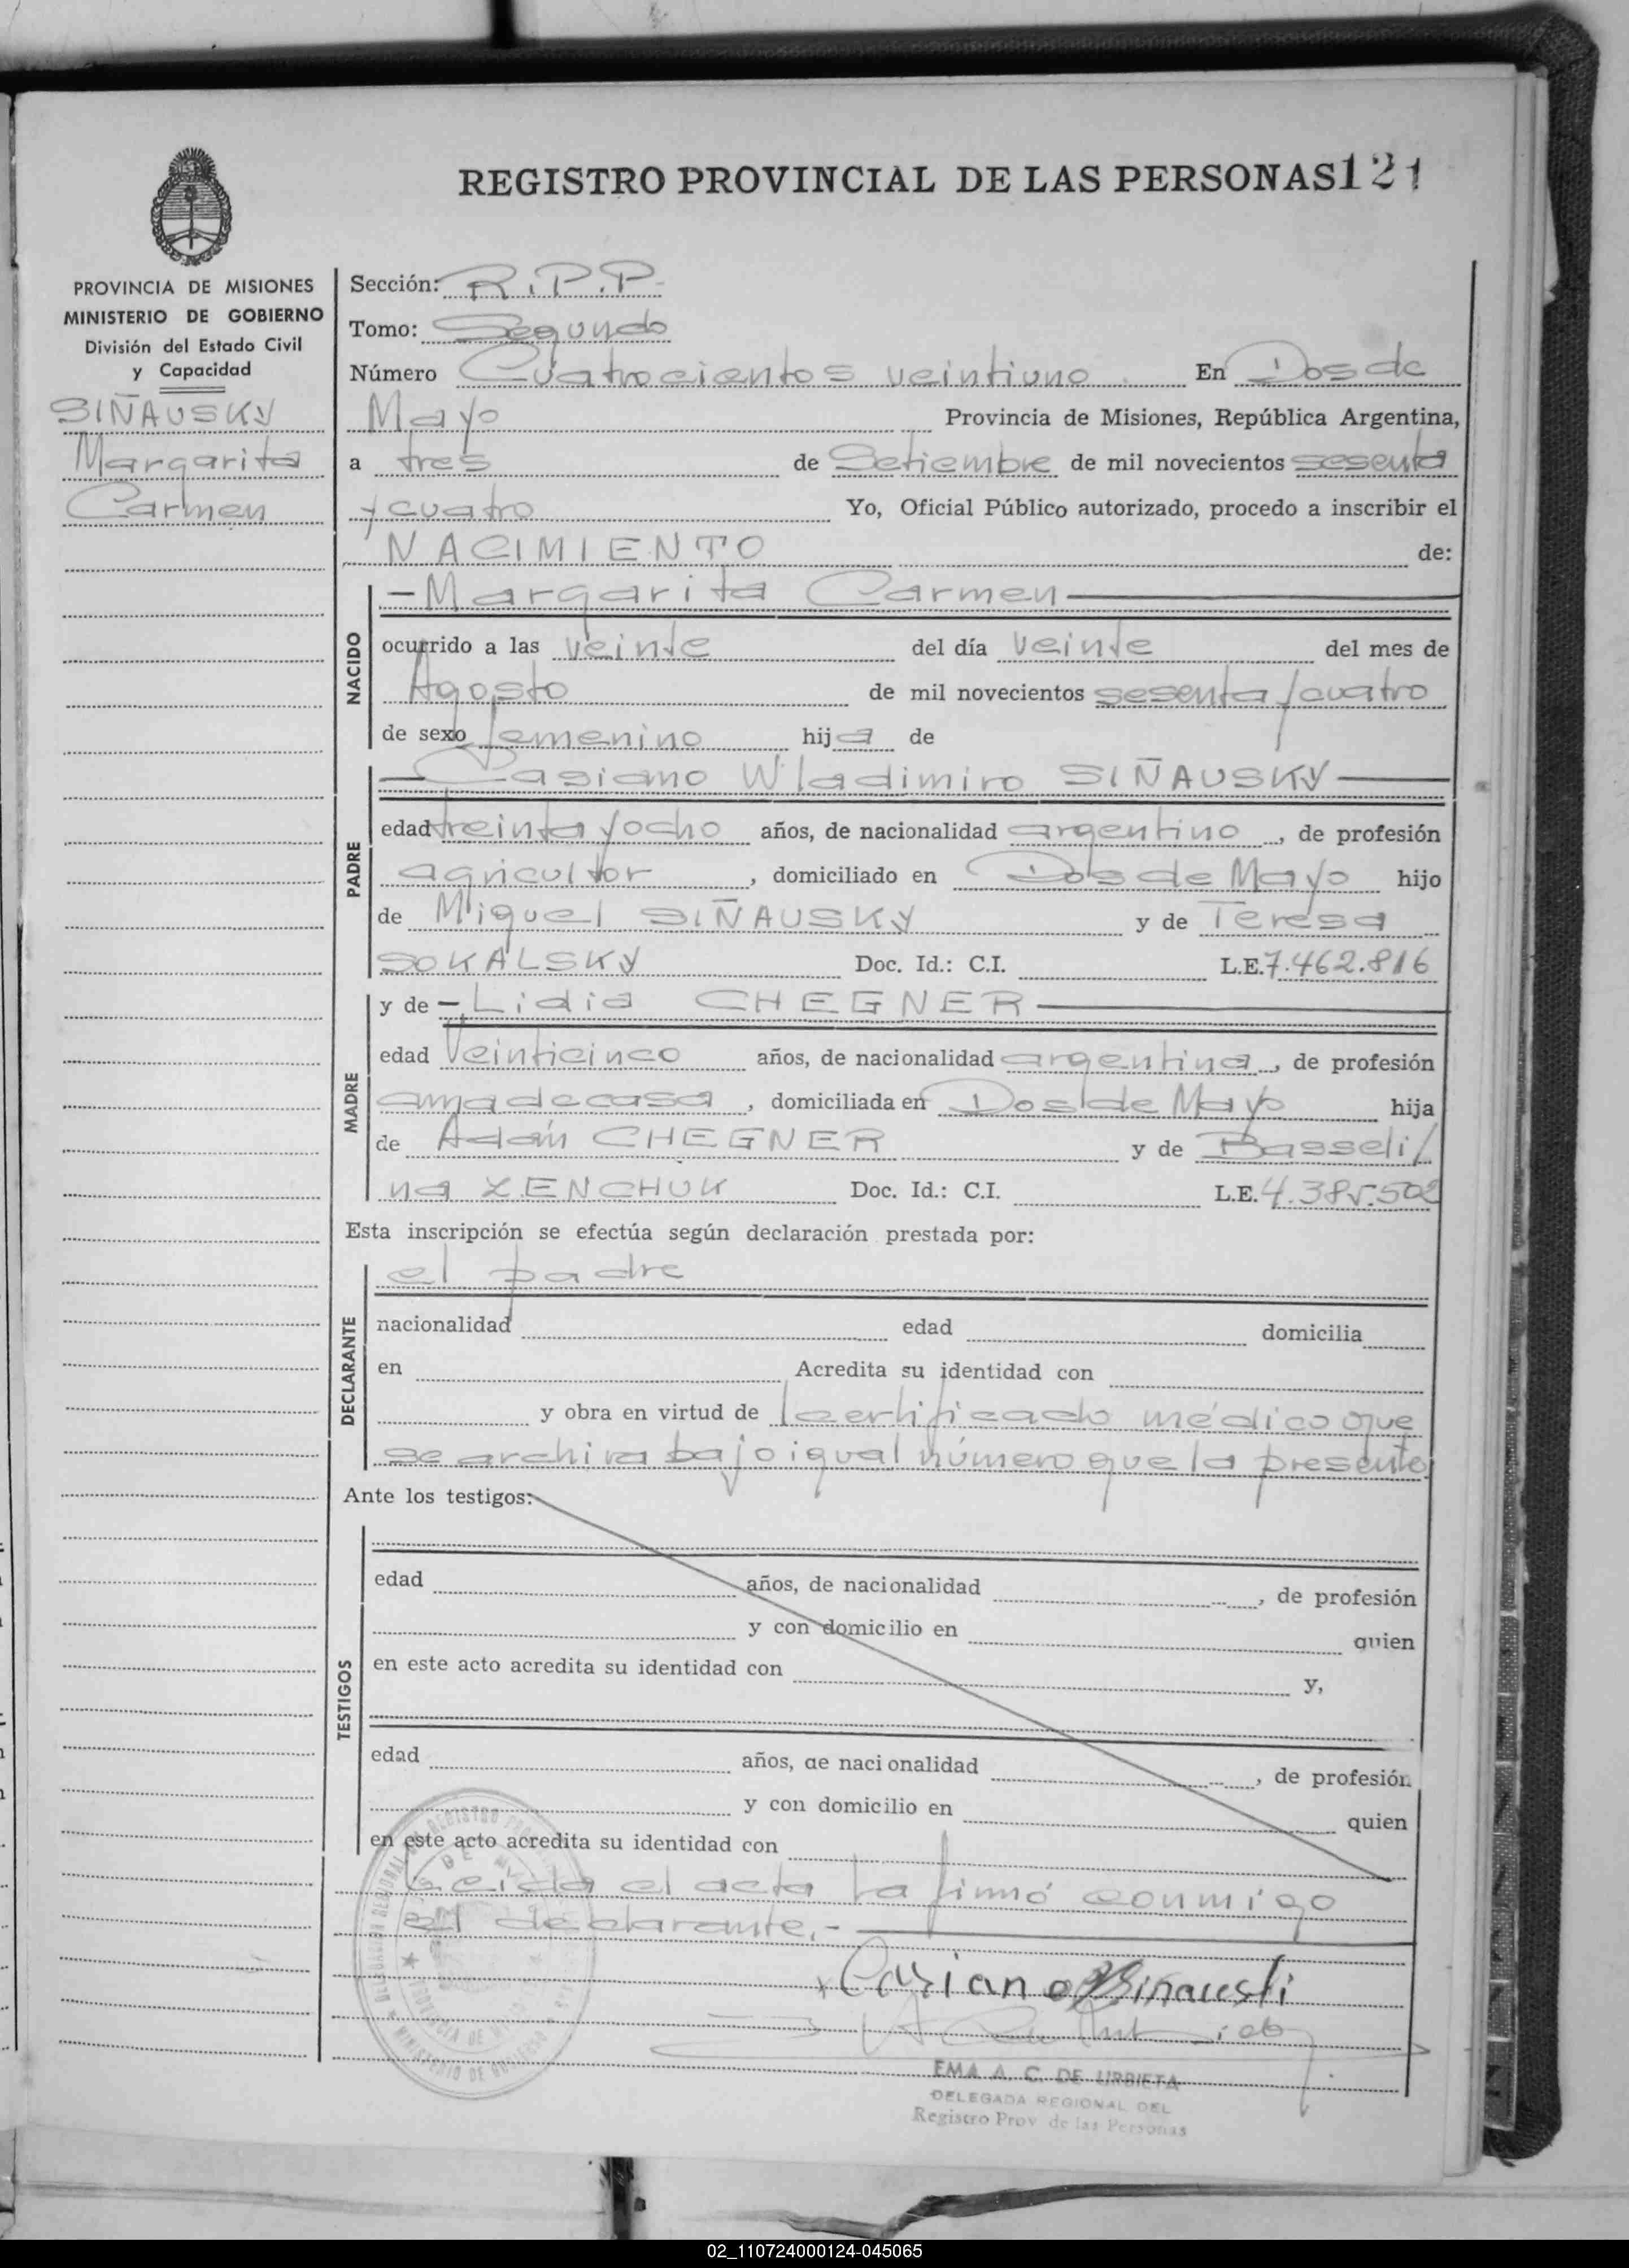 REGISTRO PROVINCIAL DE LAS PERSONAS 121
PROVINCIA DE MISIONES
MINISTERIO DE GOBIERNO
División del Estado Civil
y Capacidad
SIÑAUSKY
Margarita
Carmen
Sección: R.P.P.
Tomo: Segundo
Número Cuatrocientos veintiuno En Dos de
Mayo Provincia de Misiones, República Argentina,
a tres de Setiembre de mil novecientos sesenta
y cuatro Yo, Oficial Público autorizado, procedo a inscribir el
NACIMIENTO de:
NACIDO
-Margarita Carmen
ocurrido a las veinte del día veinte del mes de
Agosto de mil novecientos sesenta y cuatro
de sexo femenino hija de
PADRE
Casiano Wladimiro SIÑAUSKY
edad treinta y ocho años, de nacionalidad argentino, de profesión
agricultor, domiciliado en Dos de Mayo hijo
de Miguel SIÑAUSKY y de Teresa
SOKALSKY Doc. Id.: C.I. L.E. 7.462.816
MADRE
y de -Lidia CHEGNER
edad Veinticinco años, de nacionalidad argentina, de profesión
ama de casa, domiciliada en Dos de Mayo hija
de Adán CHEGNER y de Basseli/
na ZENCHUK Doc. Id.: C.I. L.E. 4.385.502
Esta inscripción se efectúa según declaración prestada por:
DECLARANTE
el padre
nacionalidad edad domicilia
en Acredita su identidad con
y obra en virtud de certificado médico que
se archiva bajo igual número que la presente
Ante los testigos:
TESTIGOS
edad años, de nacionalidad , de profesión
y con domicilio en quien
en este acto acredita su identidad con y,
edad años, de nacionalidad , de profesión
y con domicilio en quien
en este acto acredita su identidad con
Leida el acta la firmó conmigo
el declarante.-
Casiano Siñauski
EMA A. C. DE URBIETA
DELEGADA REGIONAL DEL
Registro Prov de las Personas
02_110724000124-045065